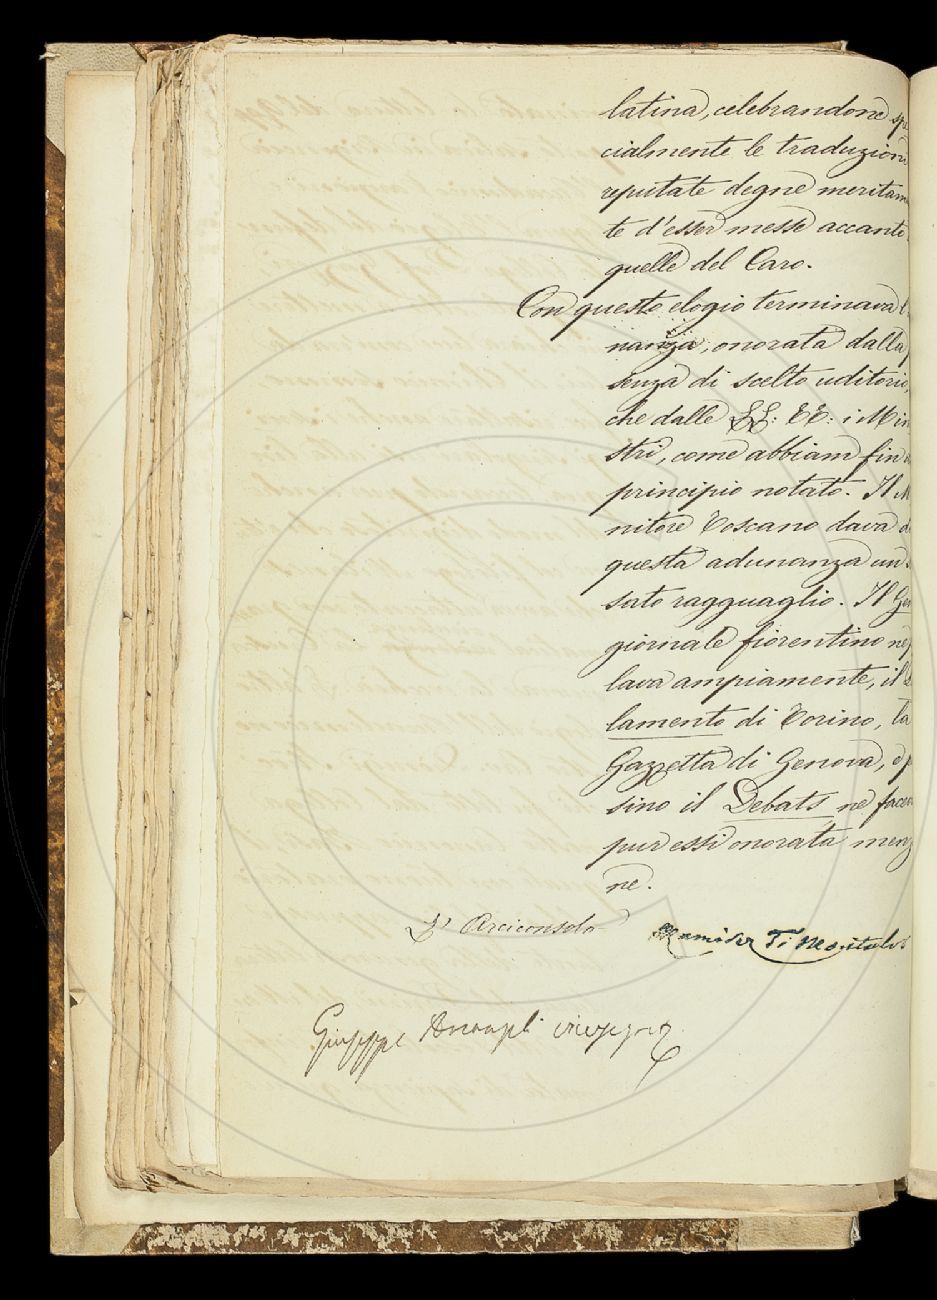 latina, celebrandone spe
cialmente le traduzioni
reputate degne meritam
te d'esser messe accanto
quelle del Caro.
Con questo elogio terminava l'
nanza, onorata dalla p
senza di scelto uditorio,
che dalle LL: EE: i Min
stri, come abbiam fin d
principio notato. Il M
nitore Toscano dava d
questa adunanza un
sato ragguaglio. Il Gen
giornale fiorentino ne p
lava ampiamente, il
lamento di Torino, la
Gazzetta di Genova, e p
sino il Debats ne facev
pur essi onorata menz
ne.
L' Arciconsolo
Ramirez Di Montalvo
Giuseppe Arcangeli vicesegrio